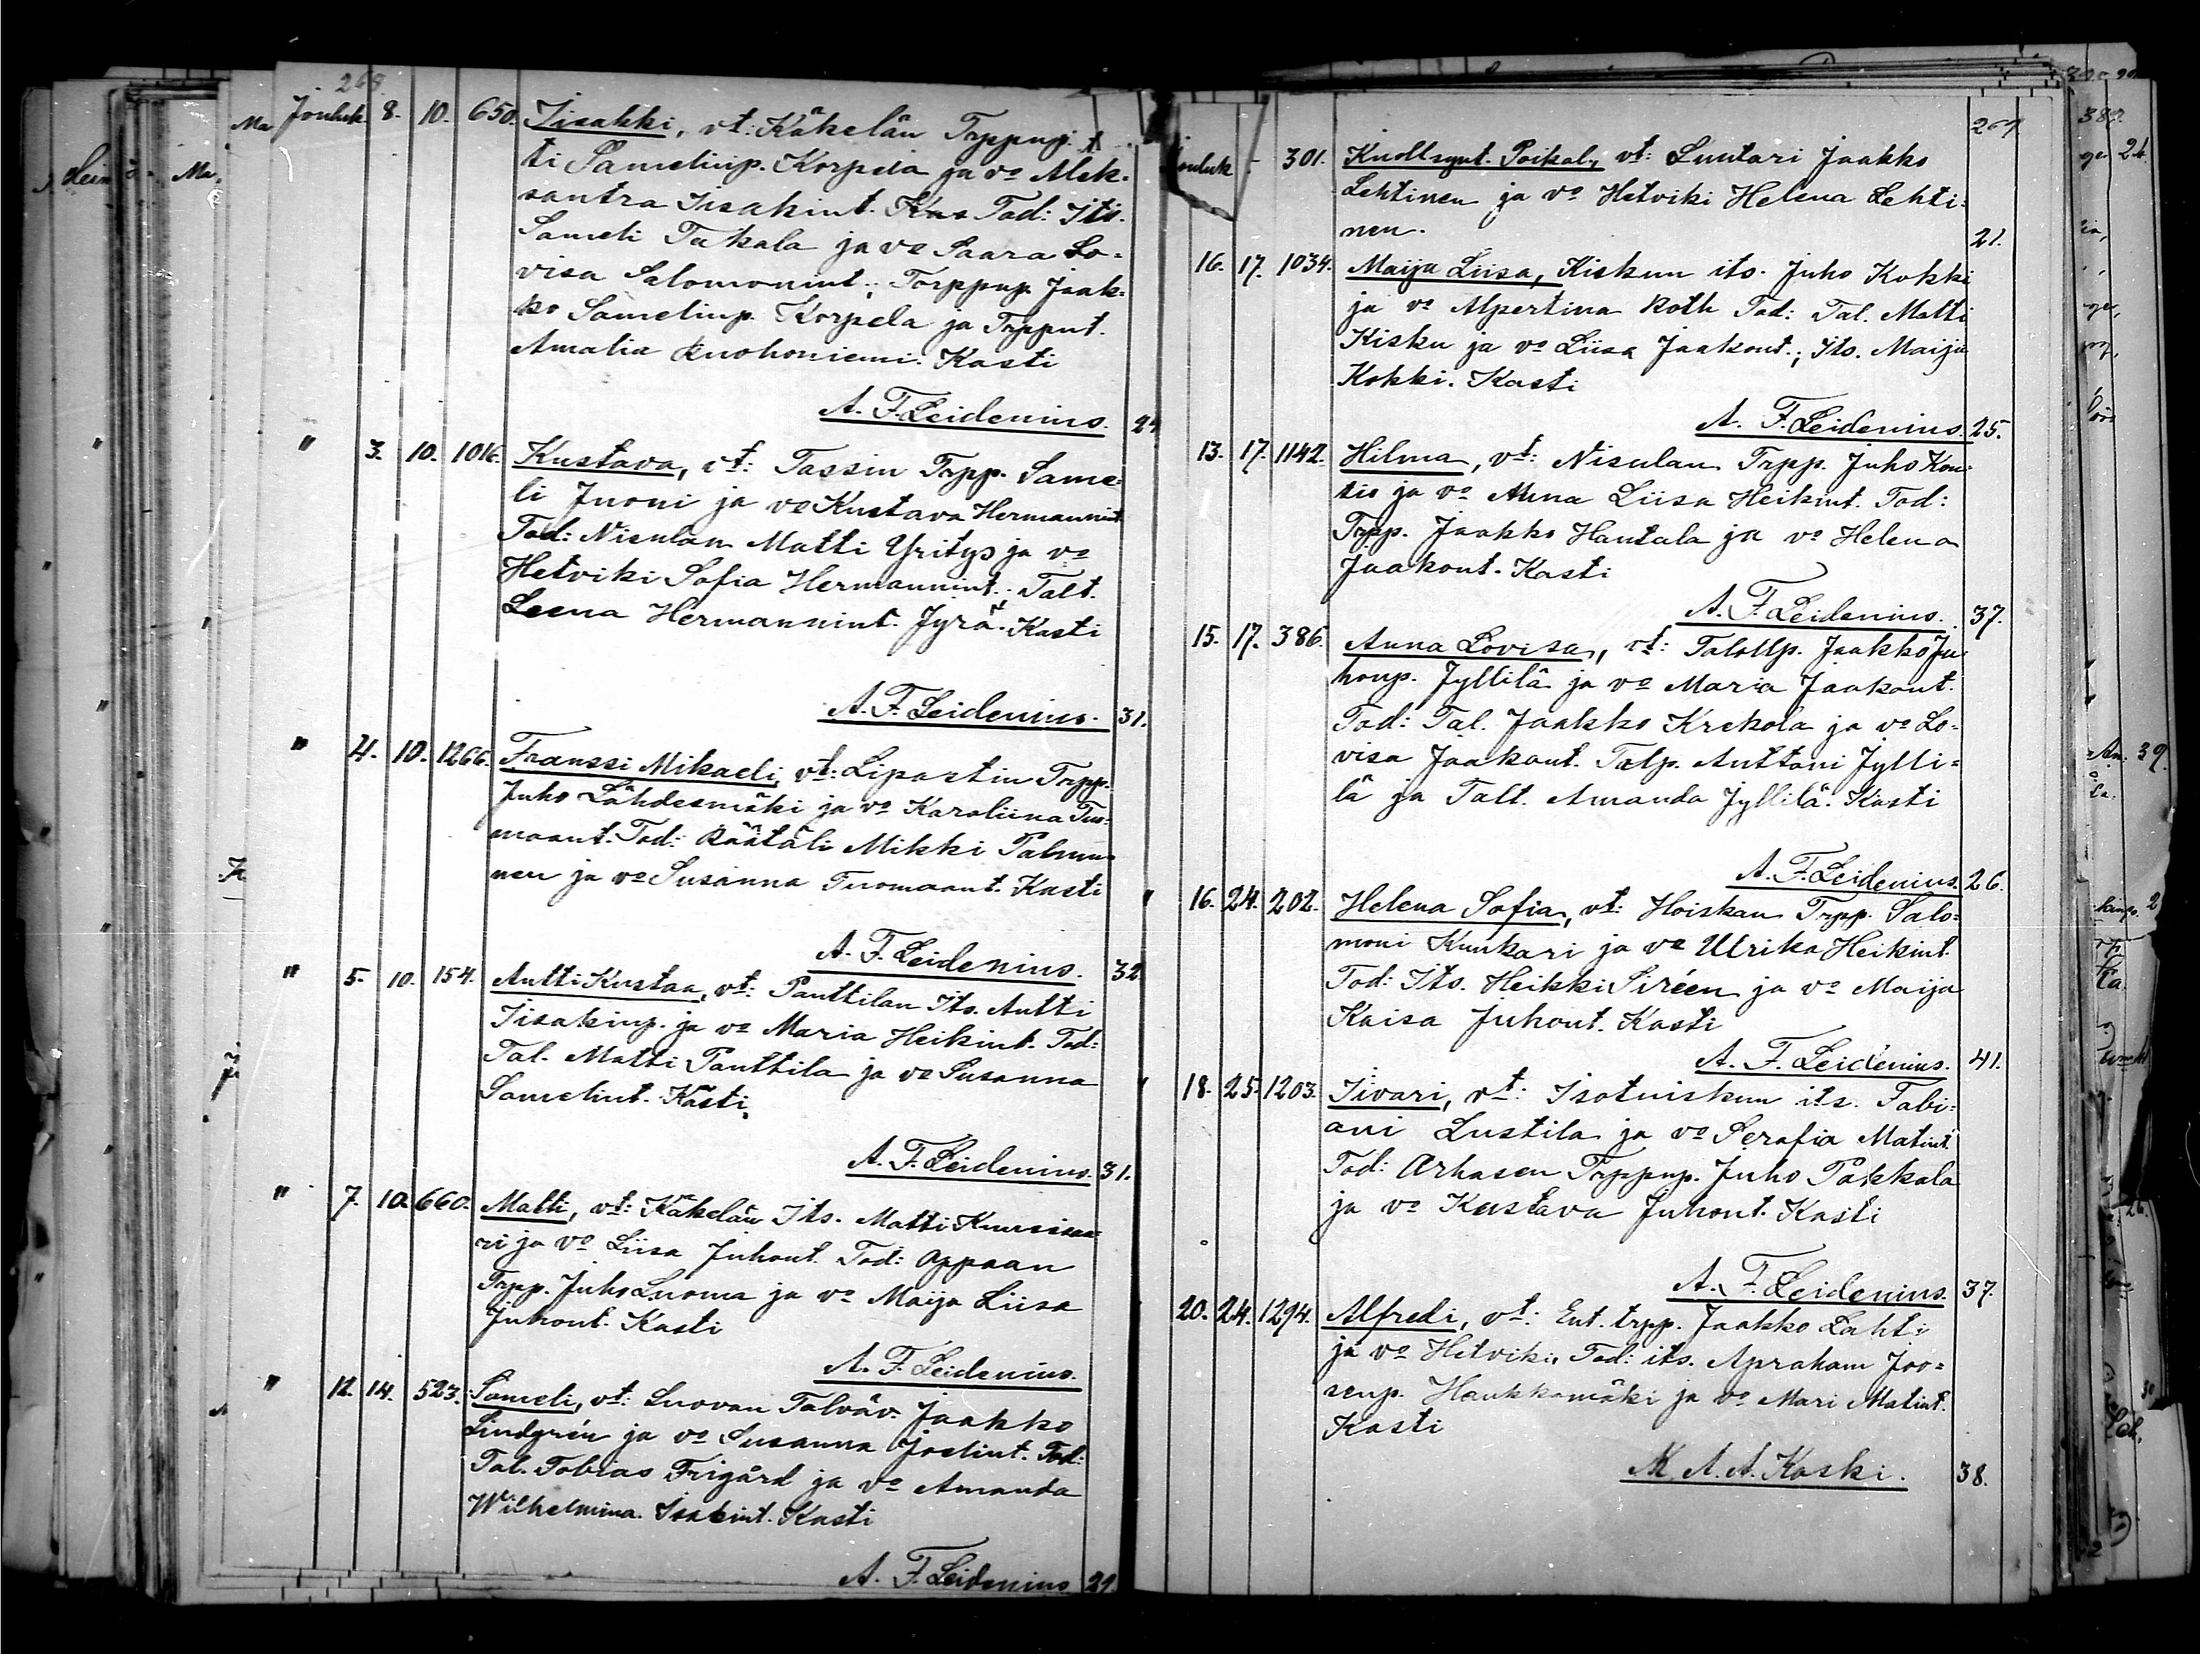 268.
Jouluk 8. 10. 650. Iisakki, vt: Käkelän Trppnp.
ti Samelinp. Korpela ja vo Alek-
santra Iisakint. Tod: Its.
Sameli Takala ja vo Saara Lo-
visa Salomonint.; Torppnp. Jaak-
ko Samelinp. Korpela ja Trppnt.
Amalia Ruohoniemi. Kasti
A. F. Leidenius. 24
" 3. 10. 1016. Kustava, vt: Tassin Trpp. Same-
li Juoni ja vo Kustava Hermannint
Tod: Nisulan Matti Yritys ja vo
Hetviki Sofia Hermannint.; Talt.
Leena Hermannint. Jyrä. Kasti
A. F. Leidenius. 31.
" 4. 10. 1266. Franssi Mikaeli, vt: Lipastin Trpp.
Juho Lähdesmäki ja vo Karoliina Tuo-
maant. Tod: Räätäli Mikki Palmu-
nen ja vo Susanna Tuomaant. Kasti
A. F. Leidenius. 32
" 5. 10. 154. Antti Kustaa, vt: Panttilan Its. Antti
Iisakinp. ja vo Maria Heikint. Tod:
Tal. Matti Panttila ja vo Susanna
Samelint. Kasti
A. F. Leidenius. 31.
" 7. 10. 660. Matti, vt: Käkelän Its. Matti Kuusisaa-
ri ja vo Liisa Juhont. Tod: Appaan
Trpp. Juho Luoma ja vo Maija Liisa
Juhont. Kasti
A. F. Leidenius.
" 12. 14. 523. Sameli, vt: Luovan Talväv. Jaakko
Lindgrén ja vo Susanna Joelint. Tod:
Tal. Tobias Frigård ja vo Amanda
Wilhelmina Isakint. Kasti
A. F. Leidenius 29.
269
Jouluk - 301. Kuoll.synt. Poikal., vt: Luutari Jaakko
Lehtinen ja vo Hetviki Helena Lehti-
nen. 21.
16. 17. 1034. Maija Liisa, Kiskun its. Juho Kokki
ja vo Alpertina Roth Tod: Tal. Matti
Kisku ja vo Liisa Jaakont.; Its. Maija
Kokki. Kasti
A. F. Leidenius. 25.
13. 17. 1142. Hilma, vt: Nisulan Trpp. Juho Kon-
tio ja vo Anna Liisa Heikint. Tod:
Trpp. Jaakko Hautala ja vo Helena
Jaakont. Kasti
A. F. Leidenius. 37.
15. 17. 386. Anna Lovisa, vt: Talollp. Jaakko Ju-
honp. Jyllilä ja vo Maria Jaakont.
Tod: Tal. Jaakko Krekola ja vo Lo-
visa Jaakont. Talp. Anttoni Jylli-
lä ja Talt. Amanda Jyllilä. Kasti
A. F. Leidenius. 26.
" 16. 24. 202. Helena Sofia, vt: Hoiskan Trpp. Salo-
moni Kunkari ja vo Ulrika Heikint.
Tod: Its. Heikki Siréen ja vo Maija
Kaisa Juhont. Kasti
A. F. Leidenius. 41.
" 18. 25. 1203. Iivari, vt: Isotuiskun its. Fabi-
ani Lustila ja vo Serafia Matint.
Tod: Orhasen Trppnp. Juho Pakkala
ja vo Kustava Juhont. Kasti
A. F. Leidenius. 37.
20. 24. 1294. Alfredi, vt: Ent. trpp. Jaakko Lahti
ja vo Hetviki. Tod: its. Apraham Joo-
senp. Haukkamäki ja vo Mari Matint.
Kasti
A. A. Koski. 38.